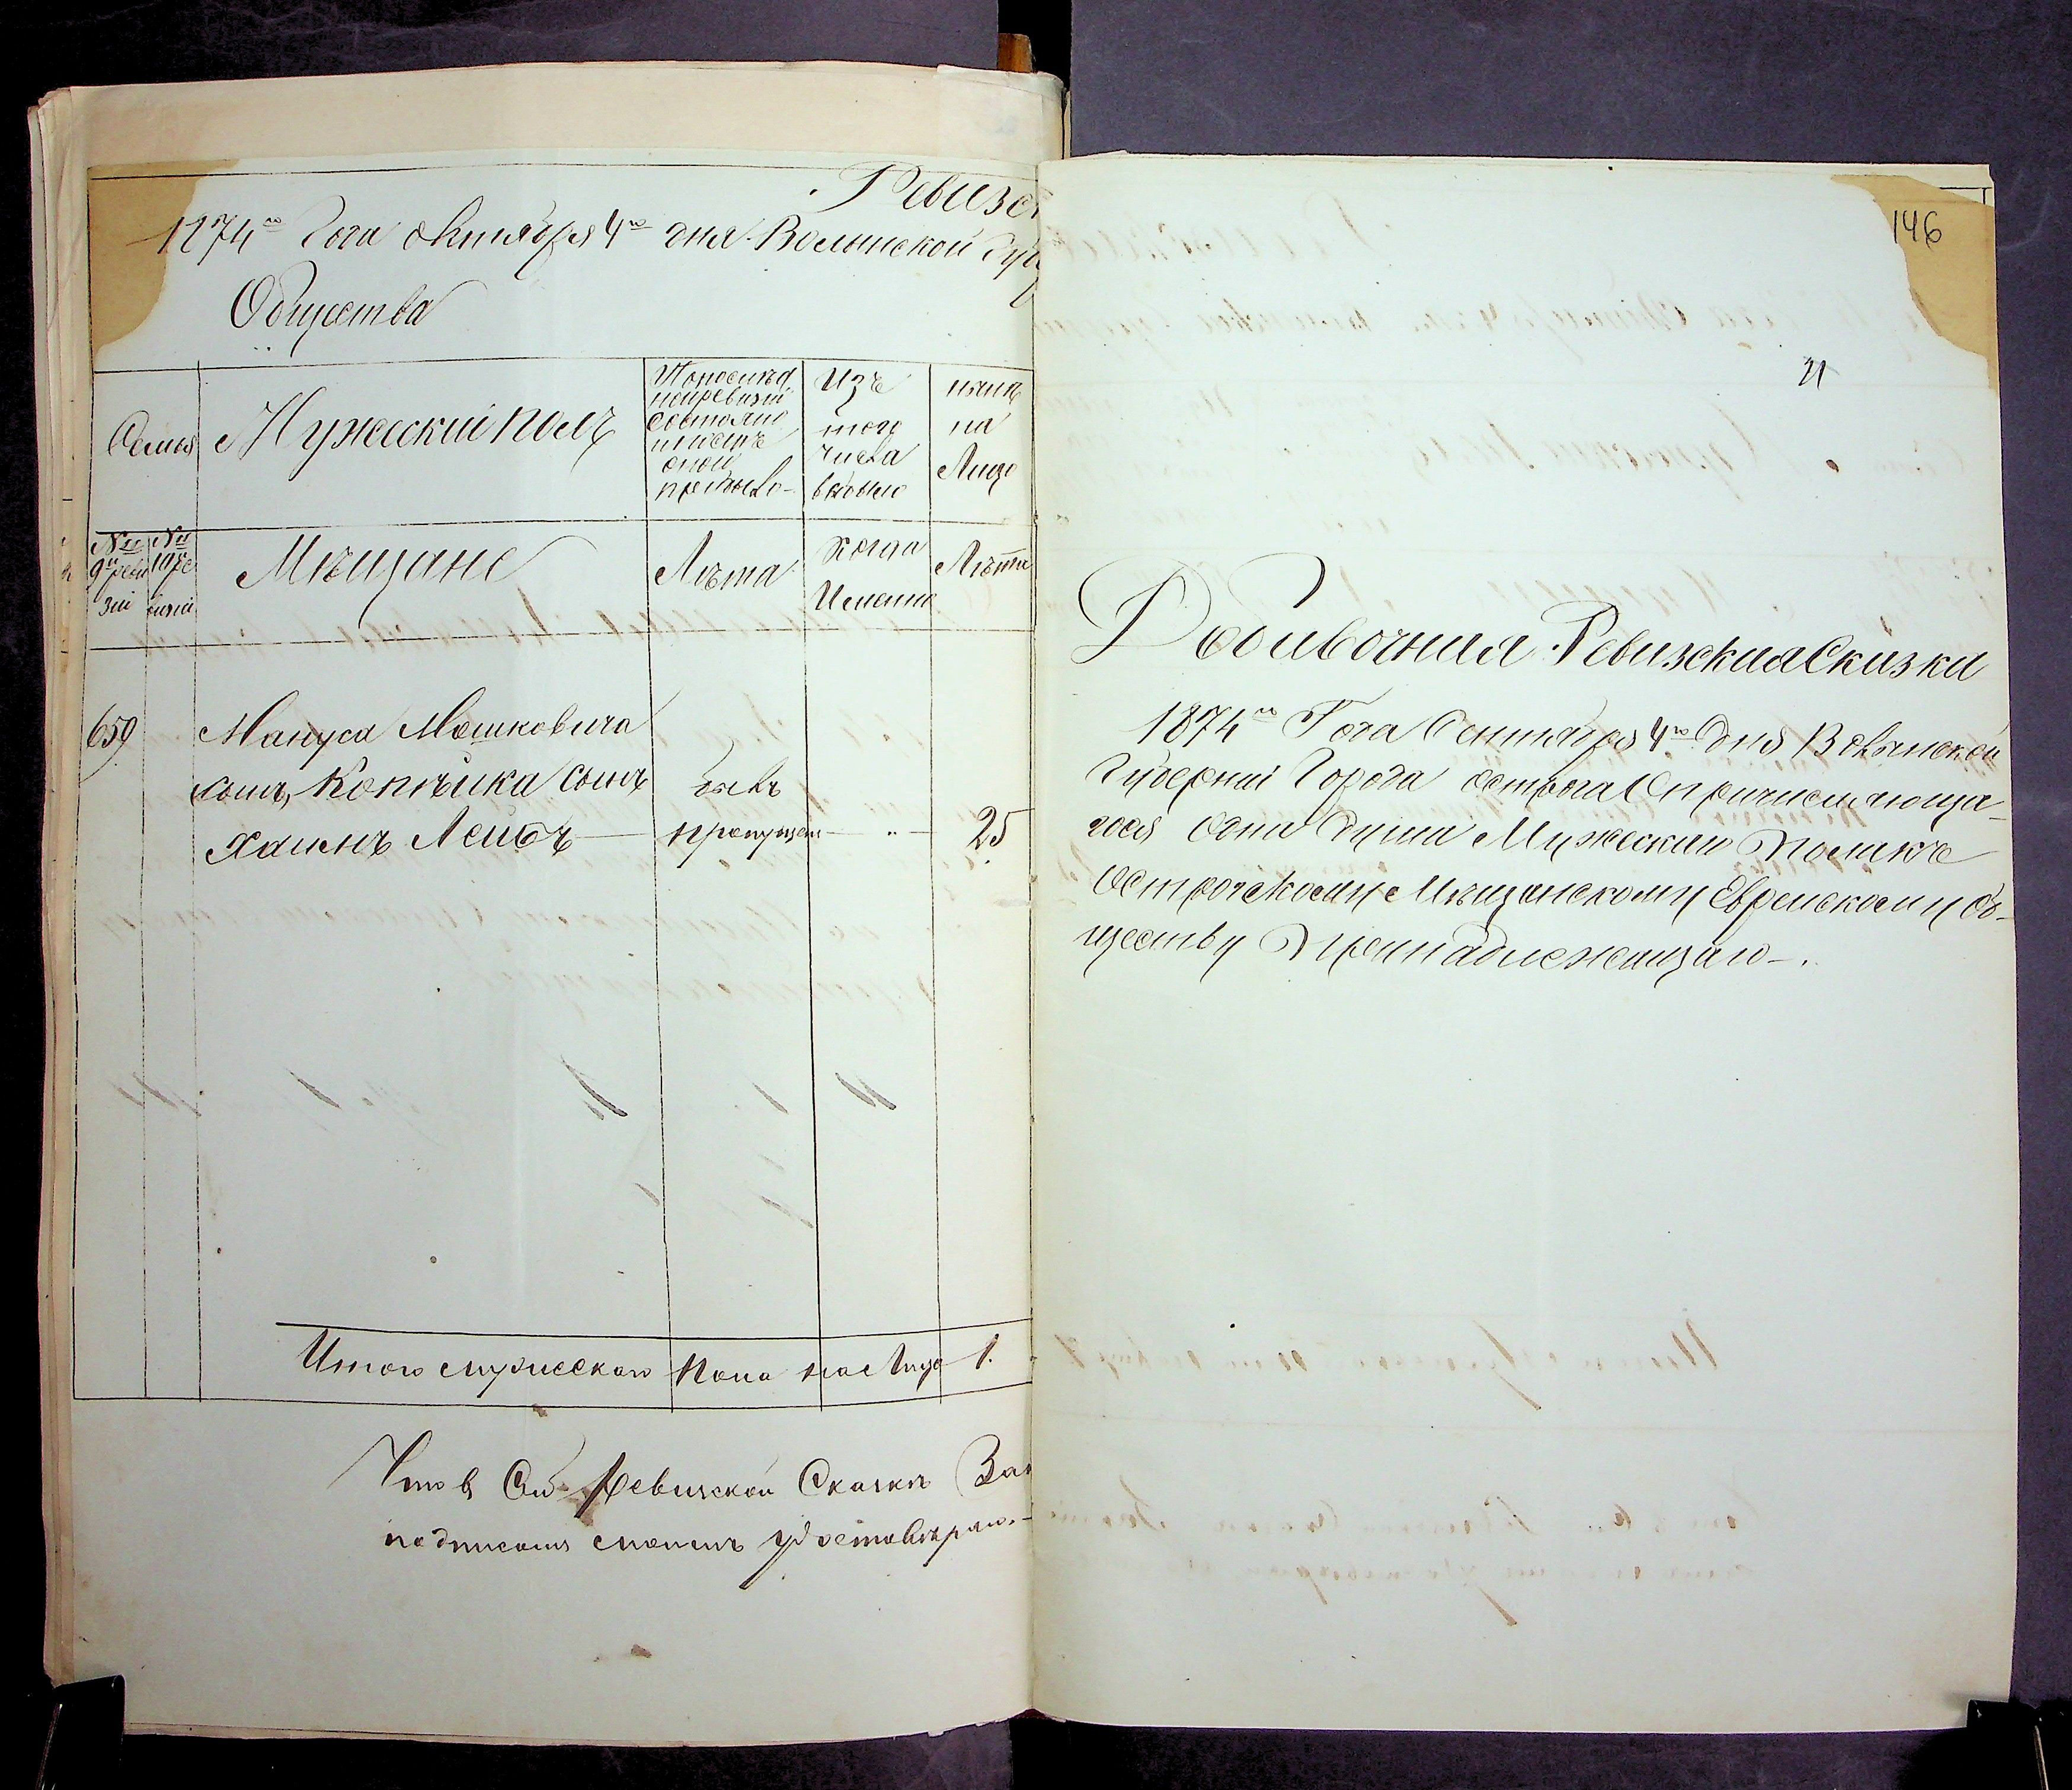 Ревизс
1874го Года октября 4го дня Волынской Губ
Общества
Семья
Мужеский полъ
По последней ревизии состояло и после оной прибыло
Изъ того числа выбыло
ныне на Лицо
№ 9й ревизии
№ 10 ревизии
Мещане
Лета
Когда Именно
Лета
659
Мануса Мошковича
сынъ, Копъика сынъ
Хаимъ Лейбъ
былъ
пропущен — " — 25
Итого мужескаго пола на Лицо 1.
Что в Сей Ревизской Сказке За
подписомъ моимъ удостоверяю.—
146
21
Добавочная Ревизская Сказка
1874го Года Октября 4го Дня Волынской
Губернии Города Острога О причисляюща-
гося одни душа Мужеский Пола къ
Острожскому Мещанскому Еврейскому Об-
ществу Принадлежащаго —.